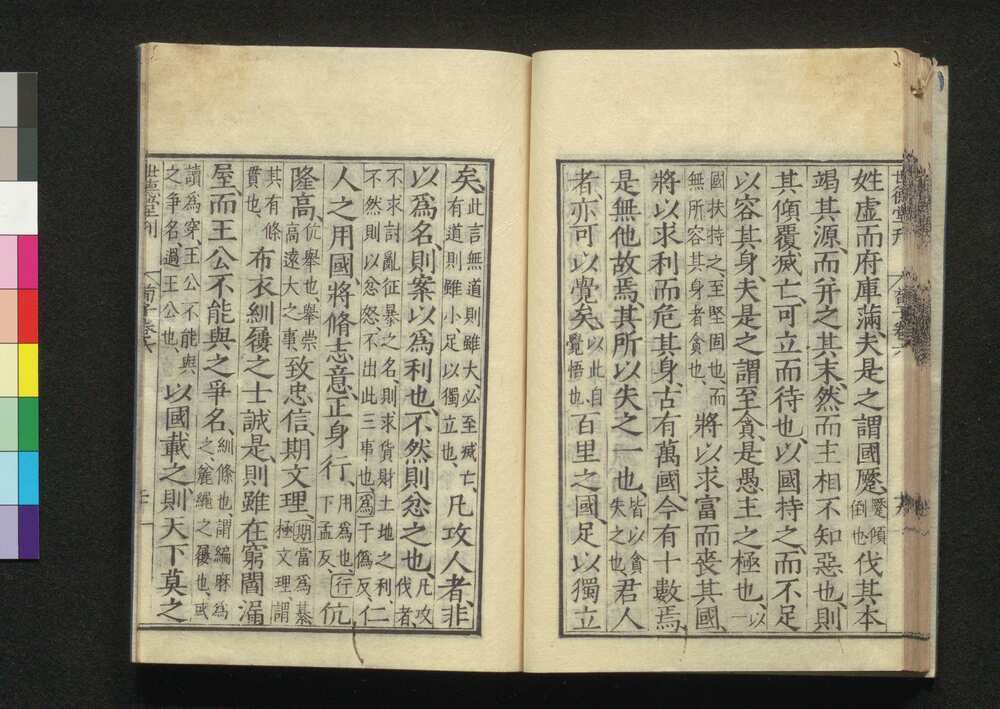 世德堂刊 荀子卷六
姓虛而府庫滿、夫是之謂國蹷、蹷傾倒也伐其本
竭其源、而并之其末、然而主相不知惡也、則
其傾覆滅亡、可立而待也、以國持之、而不足
以容其身、夫是之謂至貪、是愚主之極也、以一
國扶持之、至堅固也、而無所容其身者貪也、將以求富而喪其國、
將以求利而危其身、古有萬國、今有十數焉、
是無他故焉、其所以失之一也、皆以貪失之也、君人
者亦可以覺矣、以此自覺悟也、百里之國、足以獨立
矣、此言無道則雖大、必至滅亡、有道則雖小、足以獨立也、凡攻人者、非
以爲名、則案以爲利也、不然則忿之也、凡攻伐者、
不求討亂征暴之名、則求貨財土地之利、不然則以忿怒、不出此三事也、爲于僞反、仁
人之用國、將脩志意、正身行、用爲也、行下孟反、伉
隆高、伉舉也、舉崇高遠大之事、致忠信、期文理、期當爲綦極文理、謂
其有條貫也、布衣紃屨之士誠是、則雖在窮閻漏
屋、而王公不能與之爭名、紃絛也、謂編麻爲之、麤繩之屨也、或
讀爲穿、王公不能與之爭名、過王公也、以國載之、則天下莫之
世德堂刊 荀子卷六